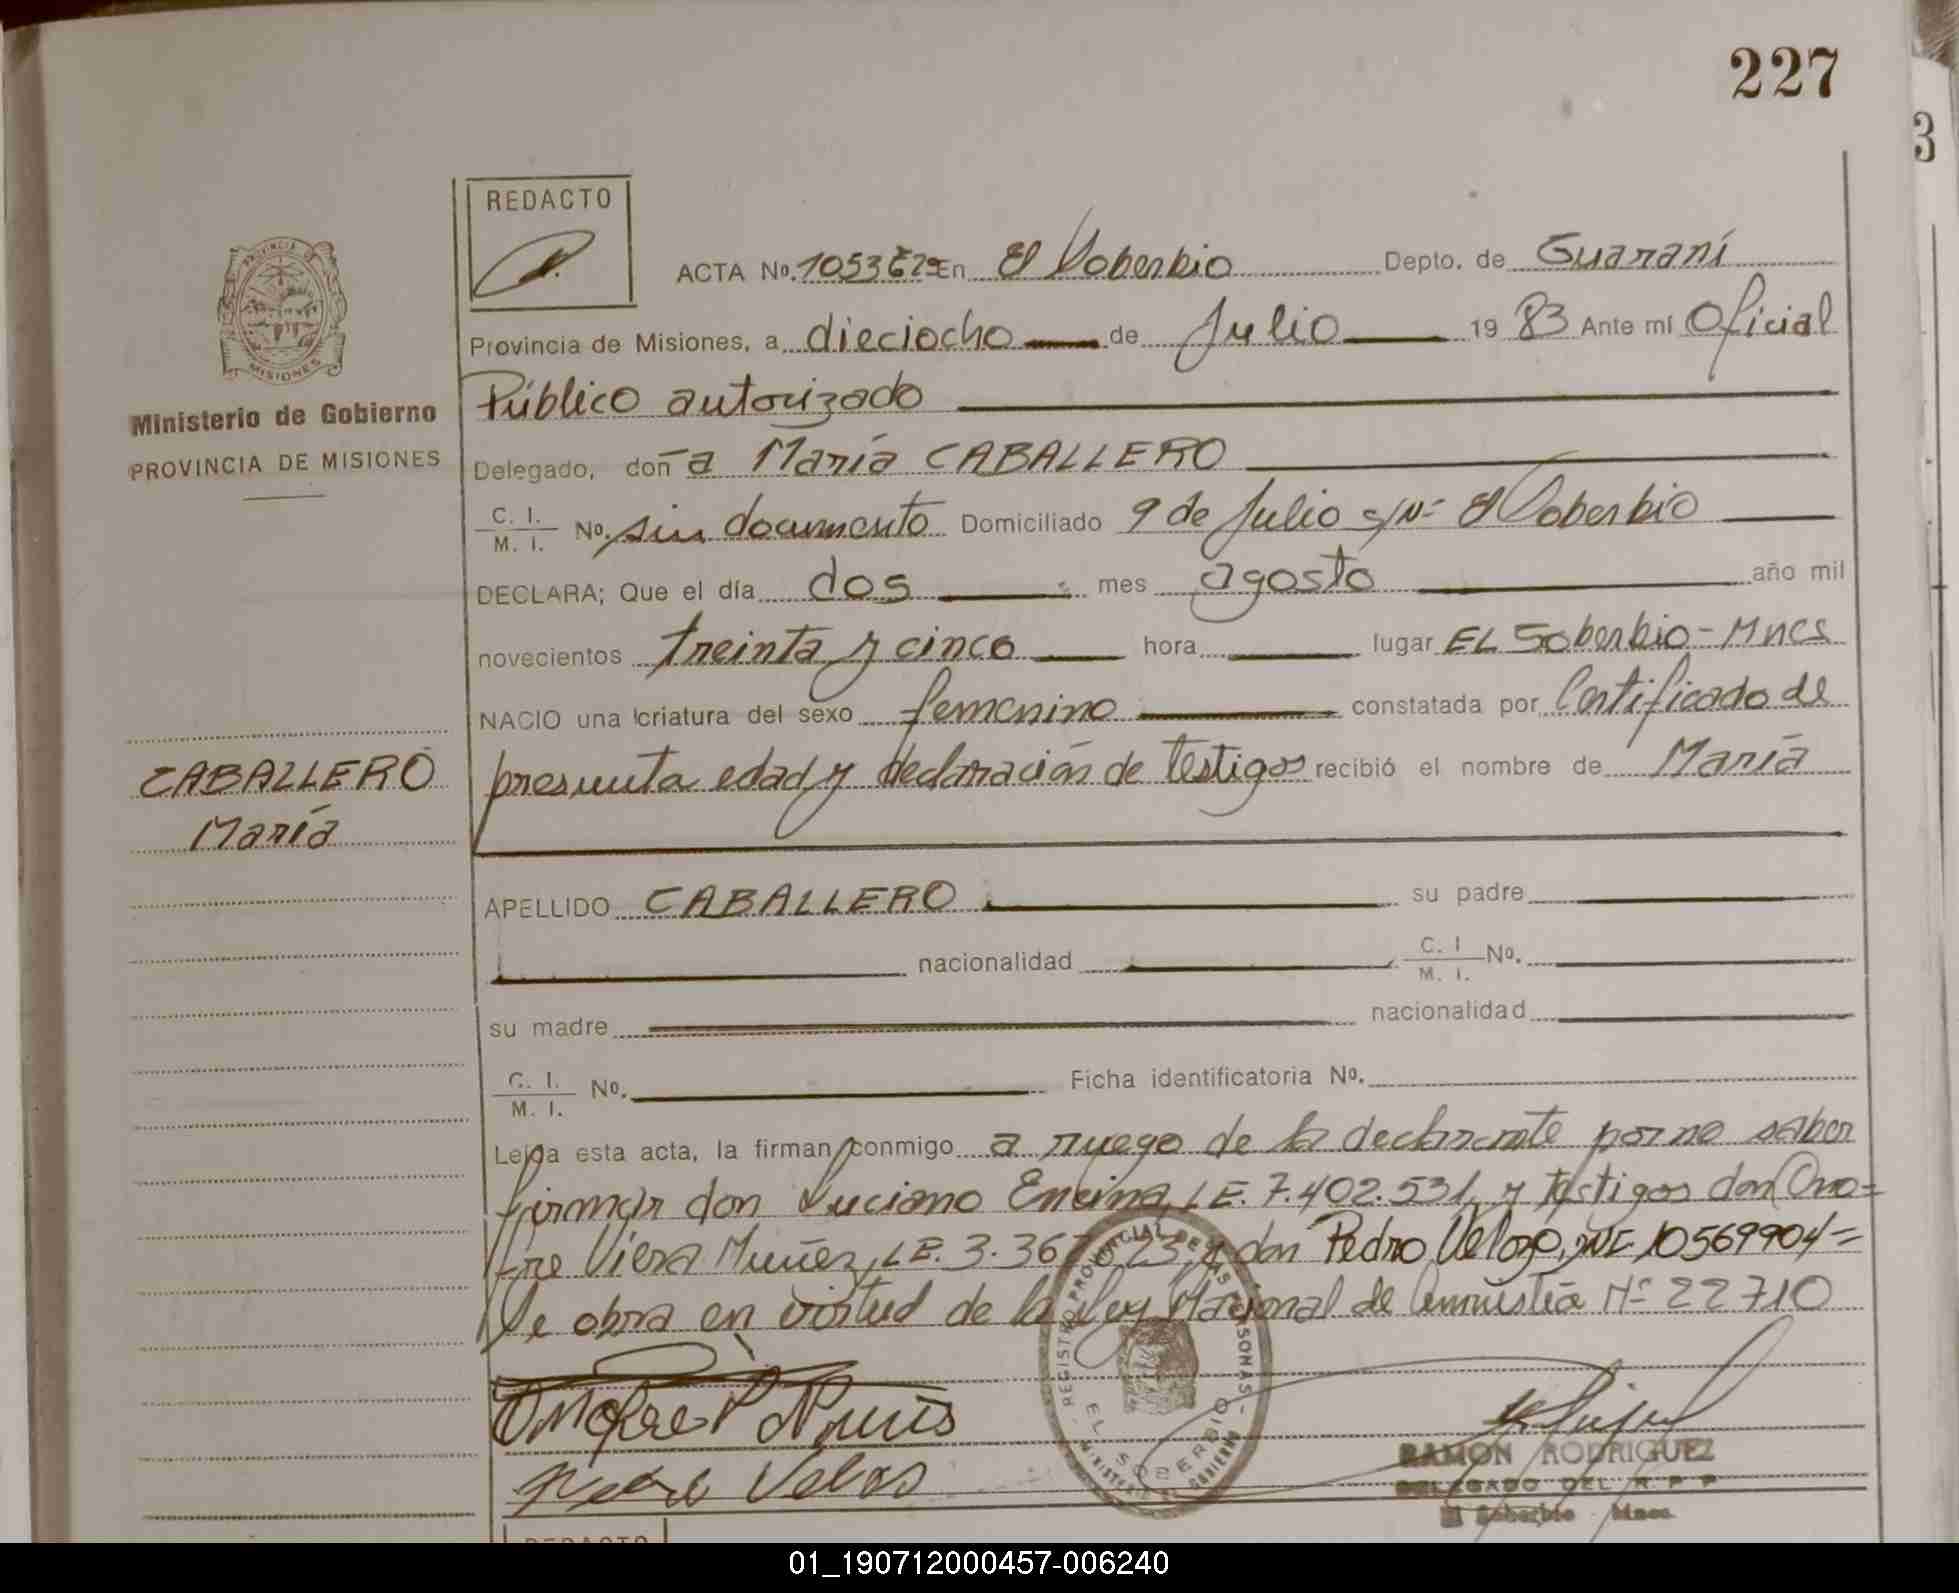 227
3
REDACTO
ACTA No. En El Soberbio Depto. de Guaraní
PROVINCIA
MISIONES
Provincia de Misiones, a dieciocho de Julio 19 83 Ante mí Oficial
Público autorizado
Ministerio de Gobierno
PROVINCIA DE MISIONES
Delegado, don a María CABALLERO
C. I.
M. I. No. sin documento Domiciliado 9 de Julio s/Nº El Soberbio
DECLARA; Que el día dos mes agosto año mil
novecientos treinta y cinco hora lugar EL Soberbio - Mnes
NACIO una criatura del sexo femenino constatada por Certificado de
presunta edad y declaración de testigos recibió el nombre de María
CABALLERO
María
APELLIDO CABALLERO su padre
nacionalidad C. I
M. I. No.
su madre nacionalidad
C. I.
M. I. No. Ficha identificatoria No.
Leida esta acta, la firman conmigo a ruego de la declarante por no saber
firmar don Luciano Encina, LE. 7.402.531, y testigos don Ono=
fre Viera Muñez, LE. 3.36 23, y don Pedro Velozo, DNI 10569904=
Se obra en virtud de la Ley Nacional de Amnistía Nº 22710
REGISTRO PROVINCIAL DE LAS PERSONAS
EL SOBERBIO
MINISTERIO DE GOBIERNO
Pedro Velos
RAMON RODRIGUEZ
DELEGADO DEL R. P. P
El Soberbio Mnes.
REDACTO
01_190712000457-006240